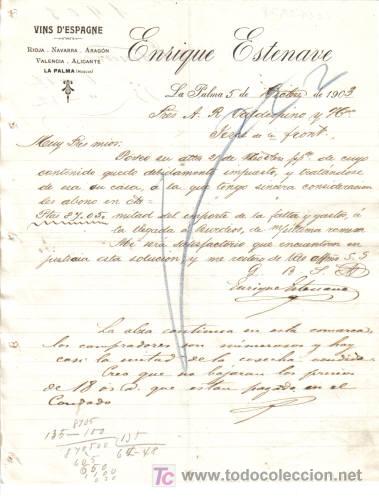 VINS D'ESPAGNE
RIOJA, NAVARRA, ARAGÓN
VALENCIA, ALICANTE
LA PALMA (HUELVA)
Enrique Estenave
La Palma 5 de de 1903
Sres A. R. Valdespino y Ho
Jerez de la front.
Muy Sres mios:
Poseo su atta de cuyo
contenido quedo debidamente impuesto, y tratándose
de esa su casa, a la que tengo sincera consideracion
les abono en Cta
Ptas 27.05 mitad del importe de la falta y gastos, á
la llegada á de m/ última remesa
Mi será satisfactorio que encuentren en
justicia esta solucion, y me reitero de Uds affmo S. S.
Q B S M
Enrique Estenave
La alza continua en esta comarca
los compradores son numerosos y hay
casi la mitad de la cosecha vendida.
Creo que no bajaran los precios
de 18 que estan pagado en el
Condado
8705
135-100
870500 135
605 64-48
650
todocoleccion
todocoleccion.net